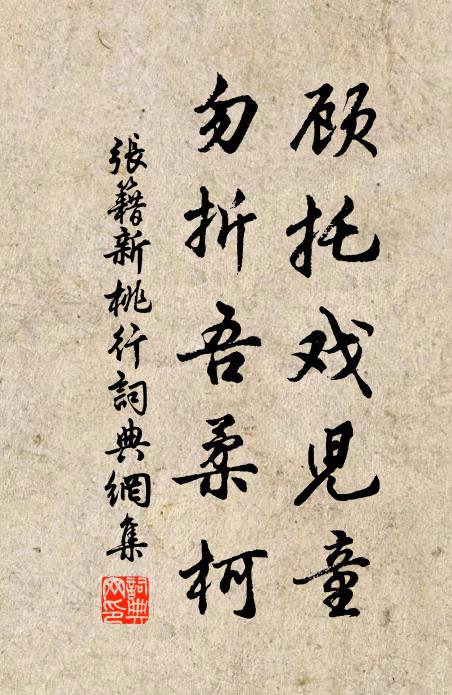 顾托戏児童
勿折吾柔柯
張籍新桃行詞典網集
詞典網印